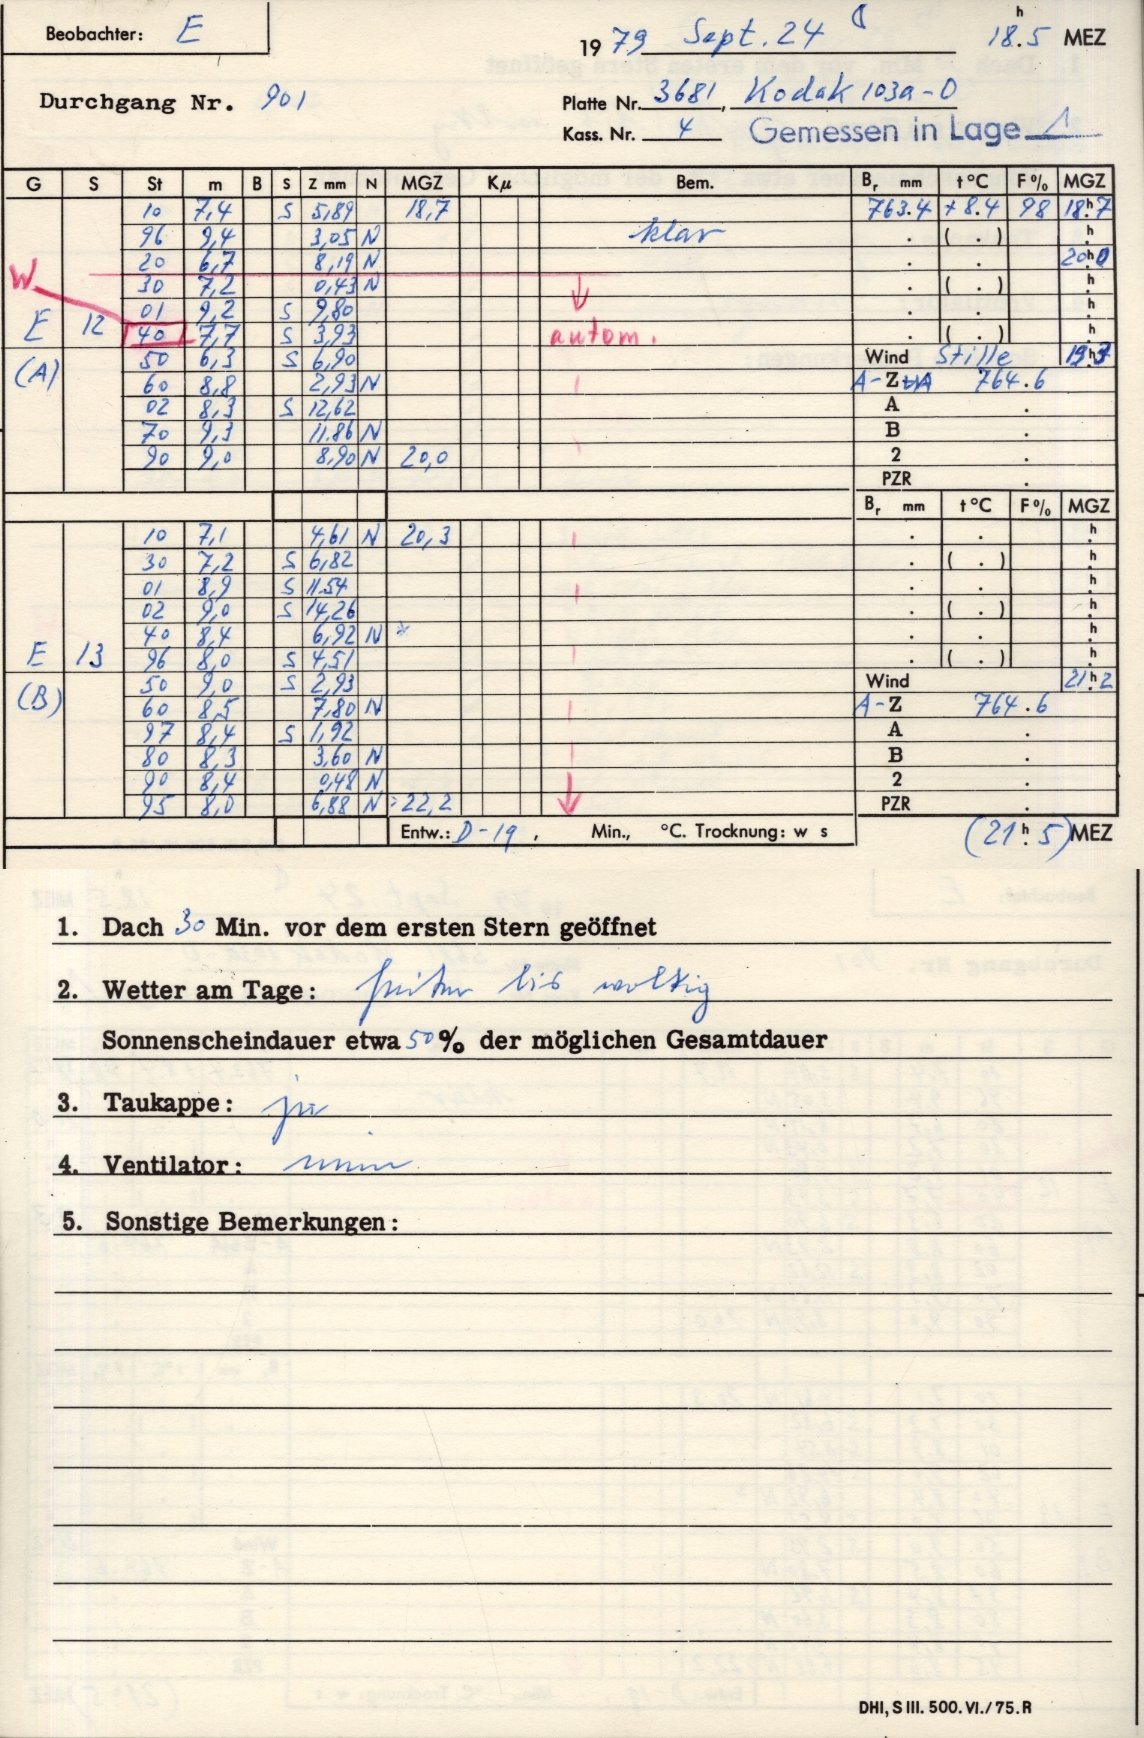 Beobachter: E
1979 Sept. 24 18.5 h MEZ
Durchgang Nr. 901
Platte Nr. 3681, Kodak 103a-O
Kass. Nr. 4 Gemessen in Lage
G S St m B S Z mm N MGZ Kμ Bem. Br mm t °C F % MGZ
10 7,4 S 5,89 18,7 763.4 +8.4 98 18 h 7
96 9,4 3,05 N klar . ( . ) h
20 6,7 8,19 N . . 20 h 0
W 30 7,2 0,43 N . ( . ) h
01 9,2 S 9,80 . . h
E 12 40 7,7 S 3,93 autom. . ( . ) h
(A) 50 6,3 S 6,90 Wind Stille 19 h 3
60 8,8 2,93 N A-Z 764.6
02 8,3 S 12,62 A .
70 9,3 11,86 N B .
90 9,0 8,90 N 20,0 2 .
PZR .
Br mm t °C F % MGZ
10 7,1 4,61 N 20,3 . . h
30 7,2 S 6,82 . ( . ) h
01 8,9 S 11.54 . . h
02 9,0 S 14,26 . ( . ) h
40 8,4 6,92 N * . . h
E 13 96 8,0 S 4,51 . ( . ) h
(B) 50 9,0 S 2,93 Wind 21 h 2
60 8,5 7,80 N A-Z 764.6
97 8,4 S 1,92 A .
80 8,3 3,60 N B .
90 8,4 0,48 N 2 .
95 8,0 6,88 N 22,2 PZR .
Entw.: D-19, Min., °C. Trocknung: w s (21 h 5) MEZ
1. Dach 30 Min. vor dem ersten Stern geöffnet
2. Wetter am Tage: heiter bis wolkig
Sonnenscheindauer etwa 50% der möglichen Gesamtdauer
3. Taukappe: ja
4. Ventilator: nein
5. Sonstige Bemerkungen:
DHI, S III. 500. VI./75. R